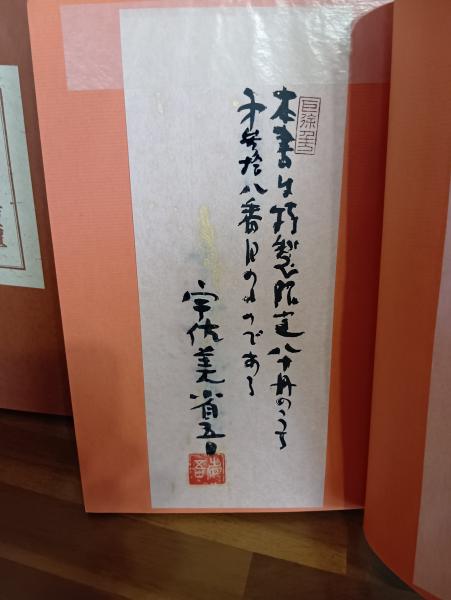 本書は特製限定八十冊のうち
才参拾八番目のものである
宇佐美省吾